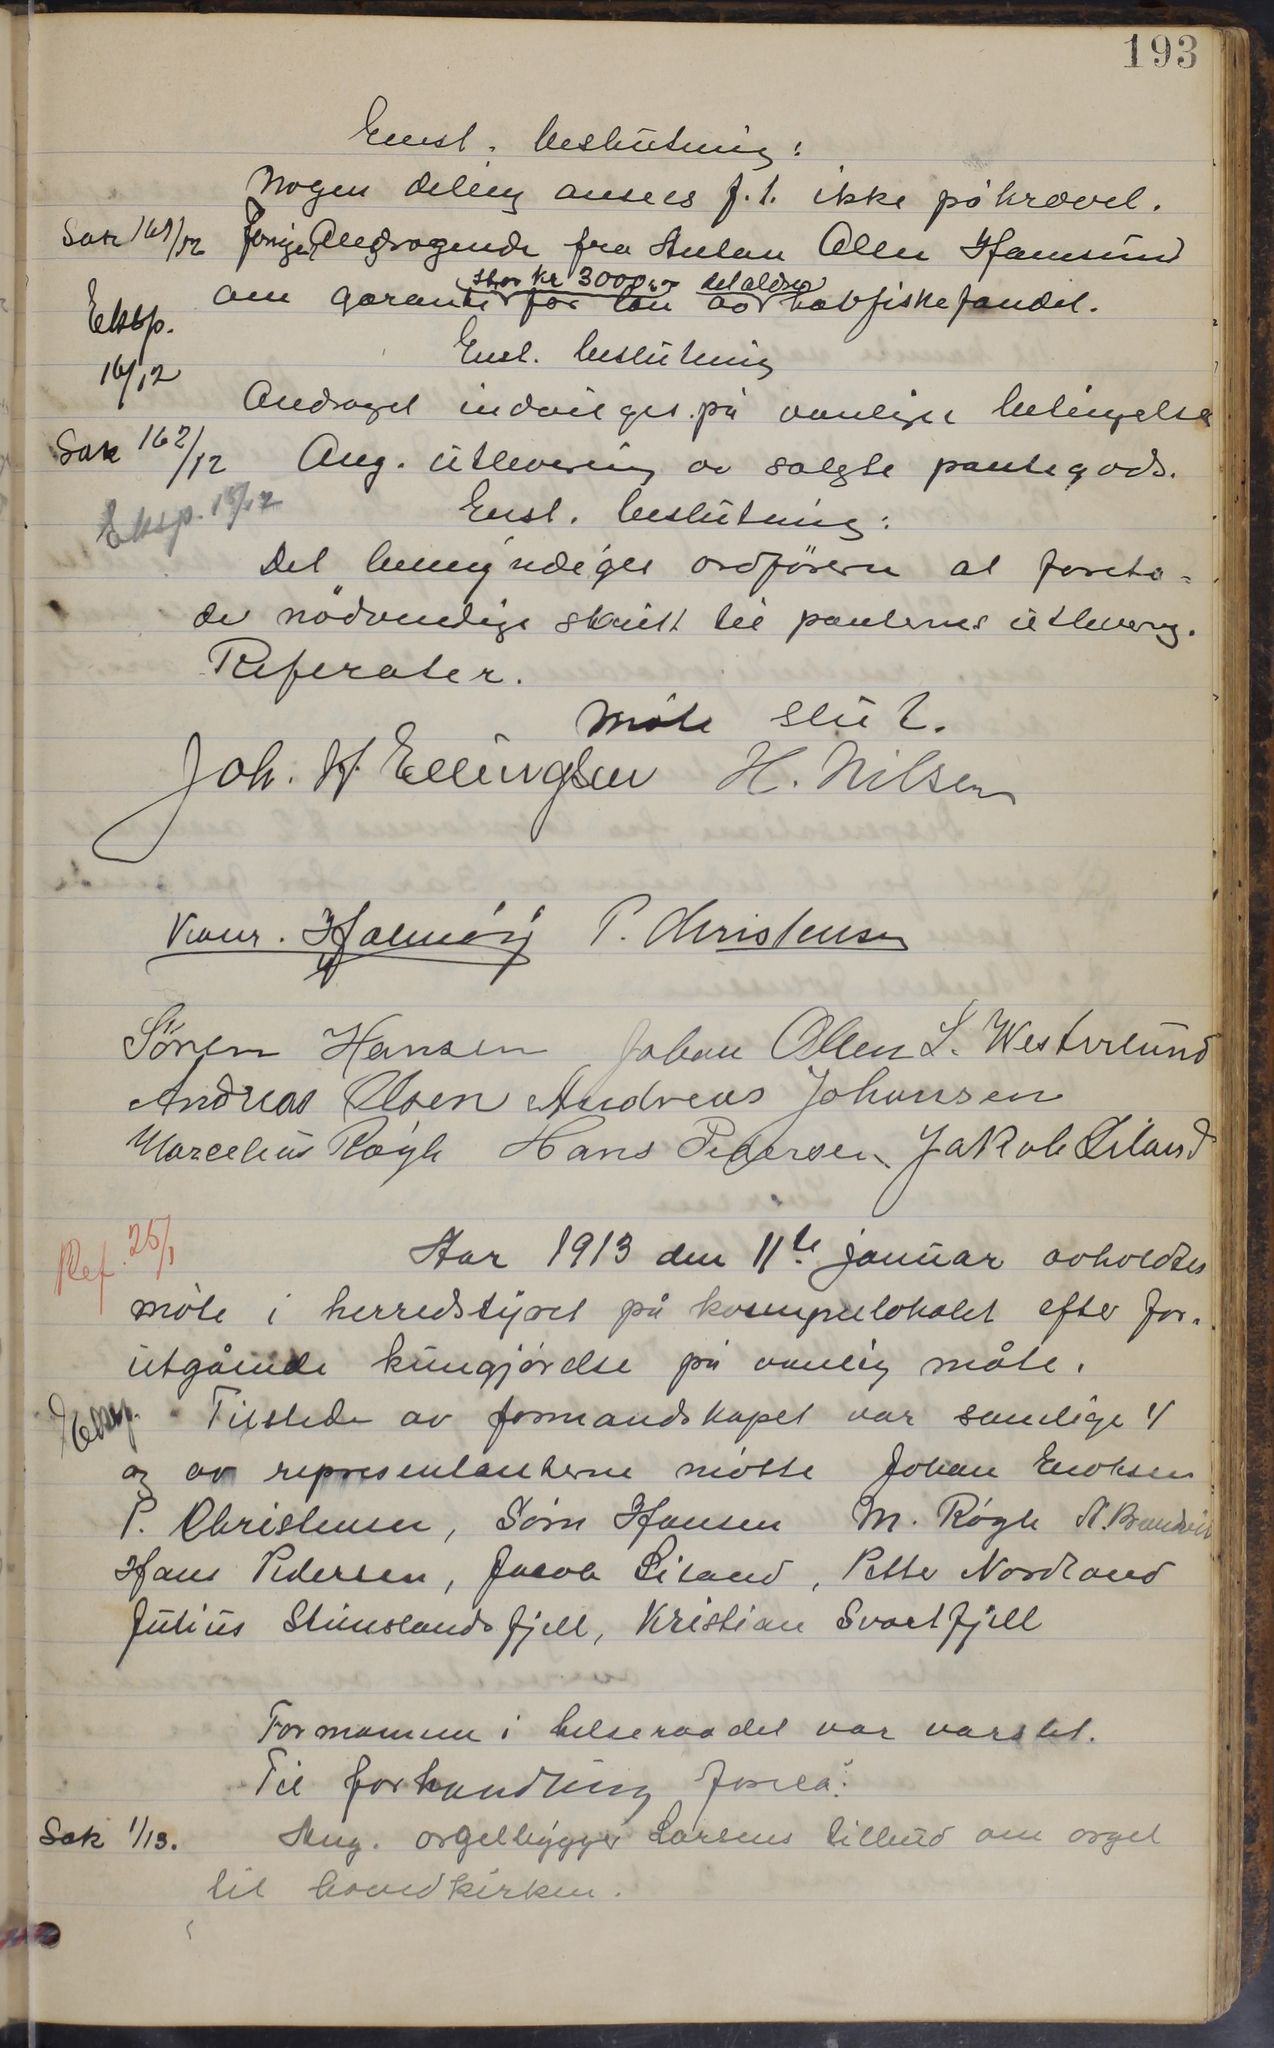 193
Enst. beslutning:
Nogen deling ansees f.t. ikke påkrævet.
Sak 161/12 Andragende fra Anton Olsen Hamsund
stor kr 3000,00
om garanti for lån av havfiskefondet.
Eksp.
16/12
Enst. beslutning
Andraget indvilges på vanlige betingelse
Sak 162/12 Ang. utlevering av solgte pantegods.
Eksp. 18/12
Enst. beslutning:
Det bemyndiges ordföreren at foreta-
de nödvendige skritt til panternes utlevering.
Referater.
Möte slut.
Joh. H. Ellingsen H. Nilsen
Konr. Halmöy P. Christensen
Sören Hansen Johan Olsen L. Westerlund
Andreas Olsen Andreas Johansen
Marcelius Rögh Hans Pedersen Jakob Liland
Ref. 25/1
Aar 1913 den 11te januar avholdtes
möte i herredstyret på kommunelokalet efter for-
utgåënde kungjörelse på vanlig måte.
Eksp. Tilstede av formandskapet var samtlige 4
og av representanterne mötte Johan Enoksen
P. Christensen, Sörn Hansen M. Rögh A. Brandvik
Hans Pedersen, Jacob Liland, Petter Nordland
Julius Stinuslandsfjell, Kristian Svartfjell
Formannen i helseraadet var varslet.
Til forhandling forelå:
Sak 1/13. Ang. orgelbygger Larsens tilbud om orgel
til hovedkirken.